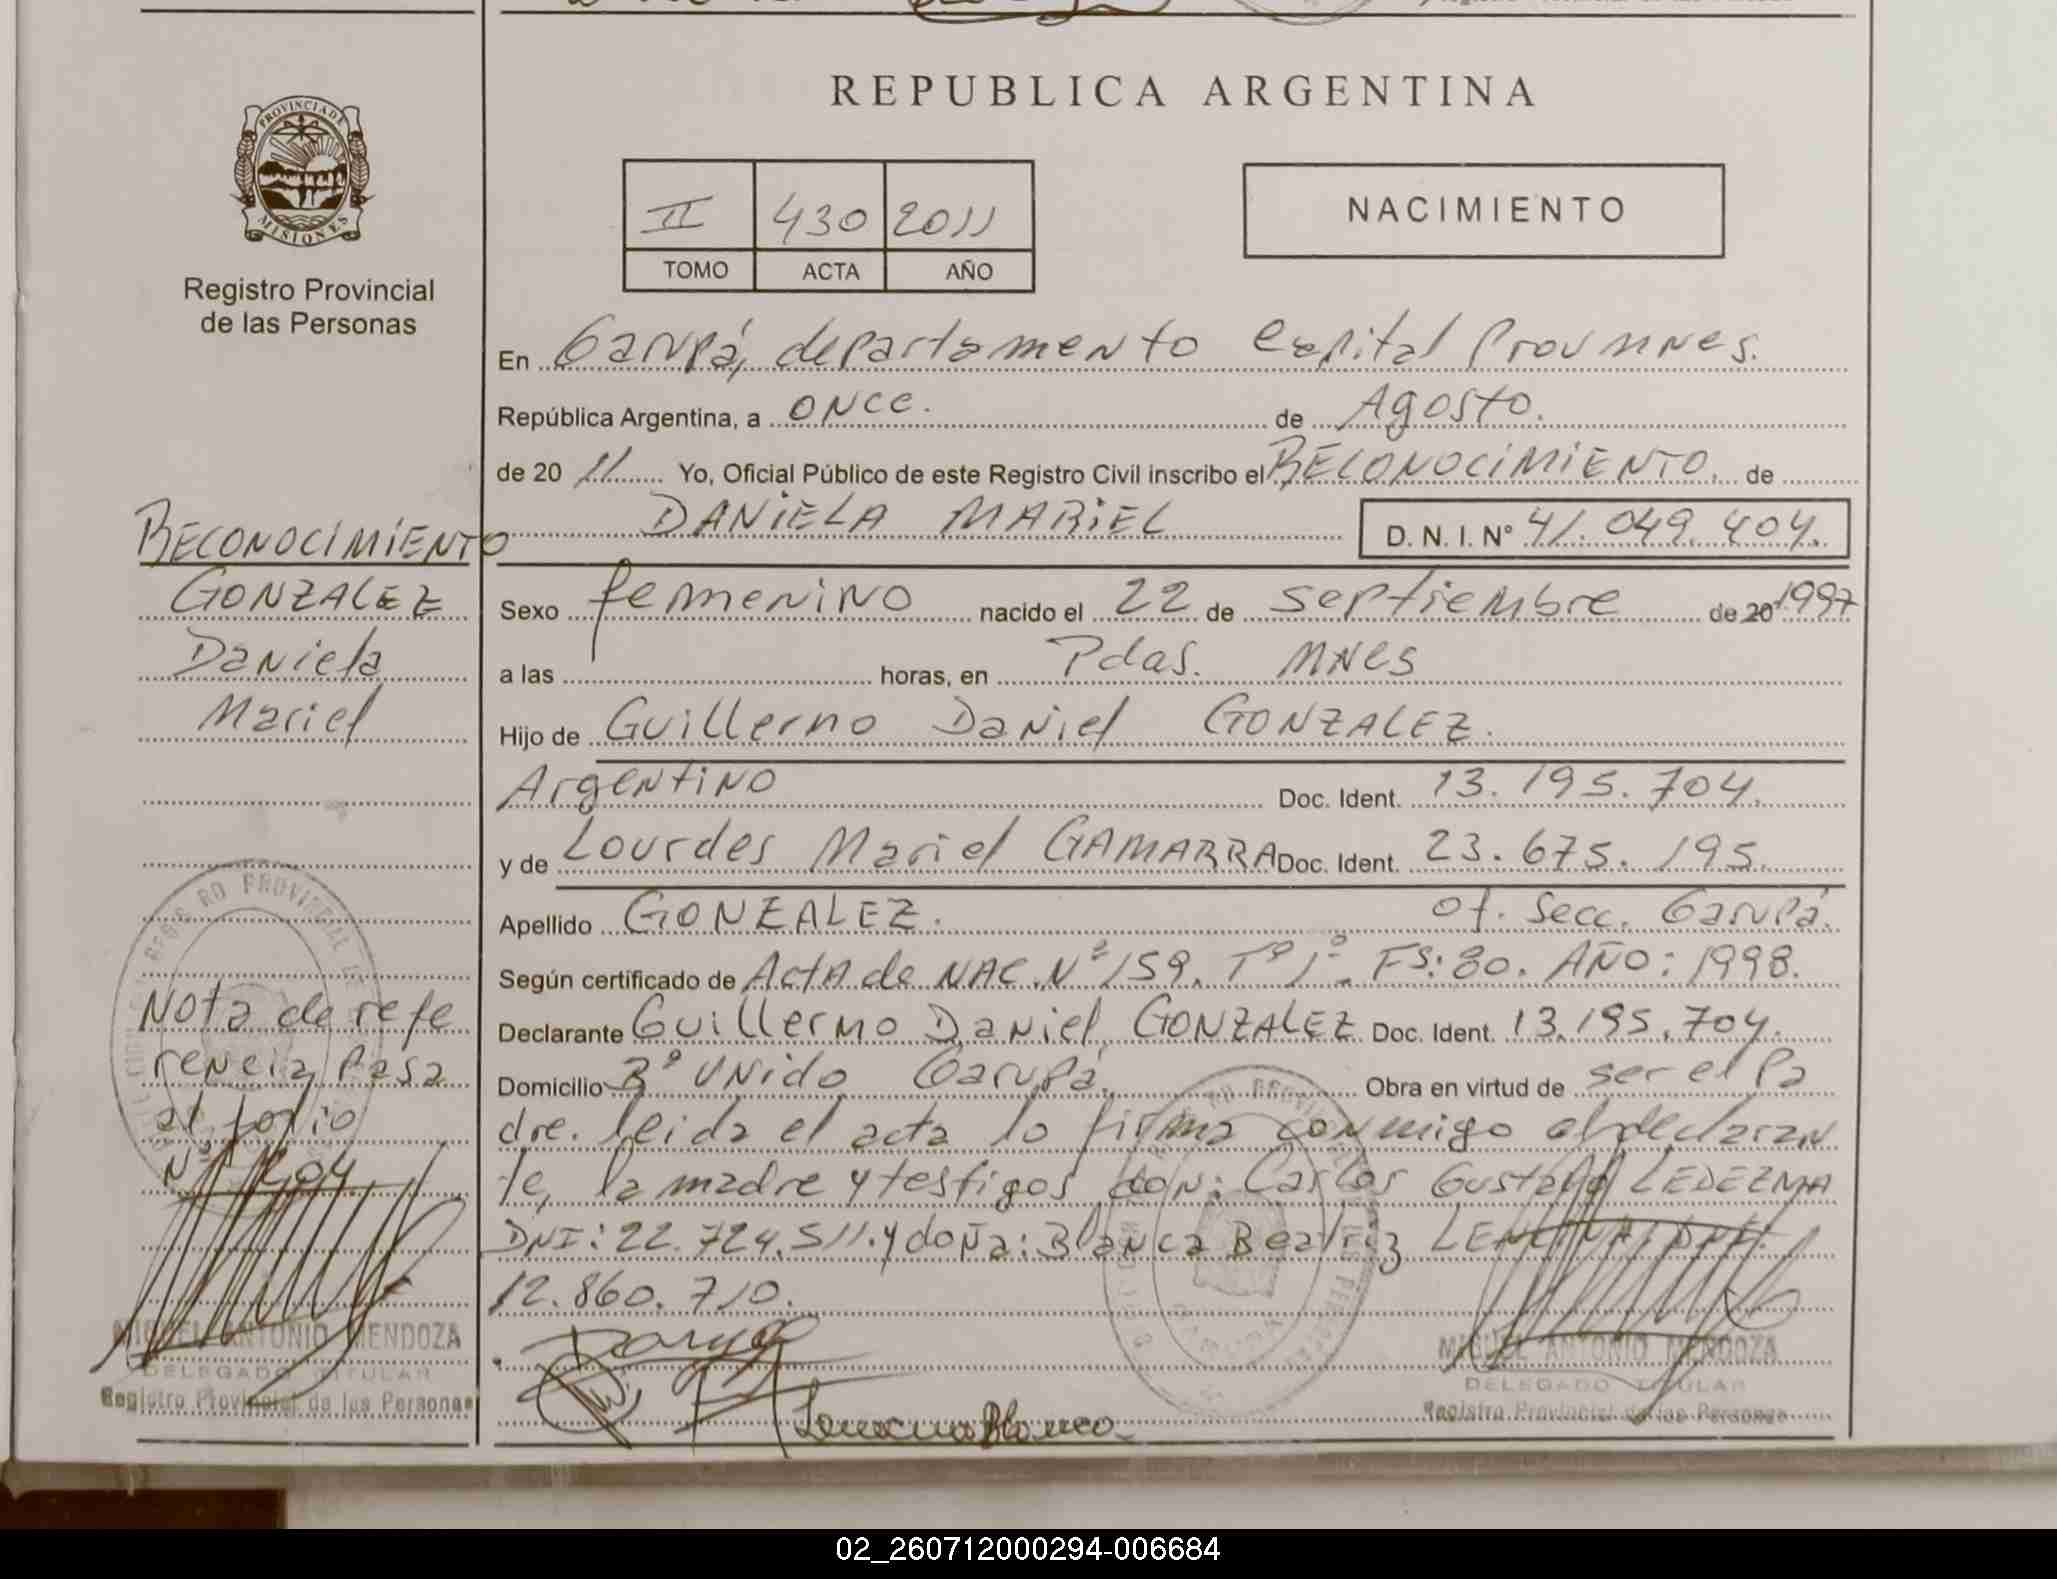 REPUBLICA ARGENTINA
PROVINCIA DE
MISIONES
Registro Provincial
de las Personas
II 430 2011
TOMO ACTA AÑO
NACIMIENTO
En Garupá, departamento Capital Prov Mnes.
República Argentina, a once. de Agosto.
de 20 11 Yo, Oficial Público de este Registro Civil inscribo el RECONOCIMIENTO. de
DANIELA MARIEL D. N. I. Nº 41.049.404.
RECONOCIMIENTO
GONZALEZ
Daniela
Mariel
Sexo femenino nacido el 22 de septiembre de 20 1997
a las horas, en Pdas. Mnes
Hijo de Guillermo Daniel GONZALEZ.
Argentino Doc. Ident. 13.195.704.
y de Lourdes Mariel GAMARRA Doc. Ident. 23.675.195.
Apellido GONZALEZ. of. Secc. Garupá.
Según certificado de Acta de NAC. Nº 159. Tº 1º. Fs: 80. AÑO: 1998.
Declarante Guillermo Daniel GONZALEZ Doc. Ident. 13.195.704.
Domicilio Bº Unido Garupá. Obra en virtud de ser el Pa
dre. leida el acta lo firma conmigo el declaran
te, la madre y testigos don: Carlos Gustavo LEDEZMA
DNI: 22.724.511. y doña: Blanca Beatriz
12.860.710.
Nota de refe
rencia Pasa
al folio
Nº
MIGUEL ANTONIO MENDOZA
DELEGADO TITULAR
Registro Provincial de las Personas
MIGUEL ANTONIO MENDOZA
DELEGADO TITULAR
Registro Provincial de las Personas
02_260712000294-006684